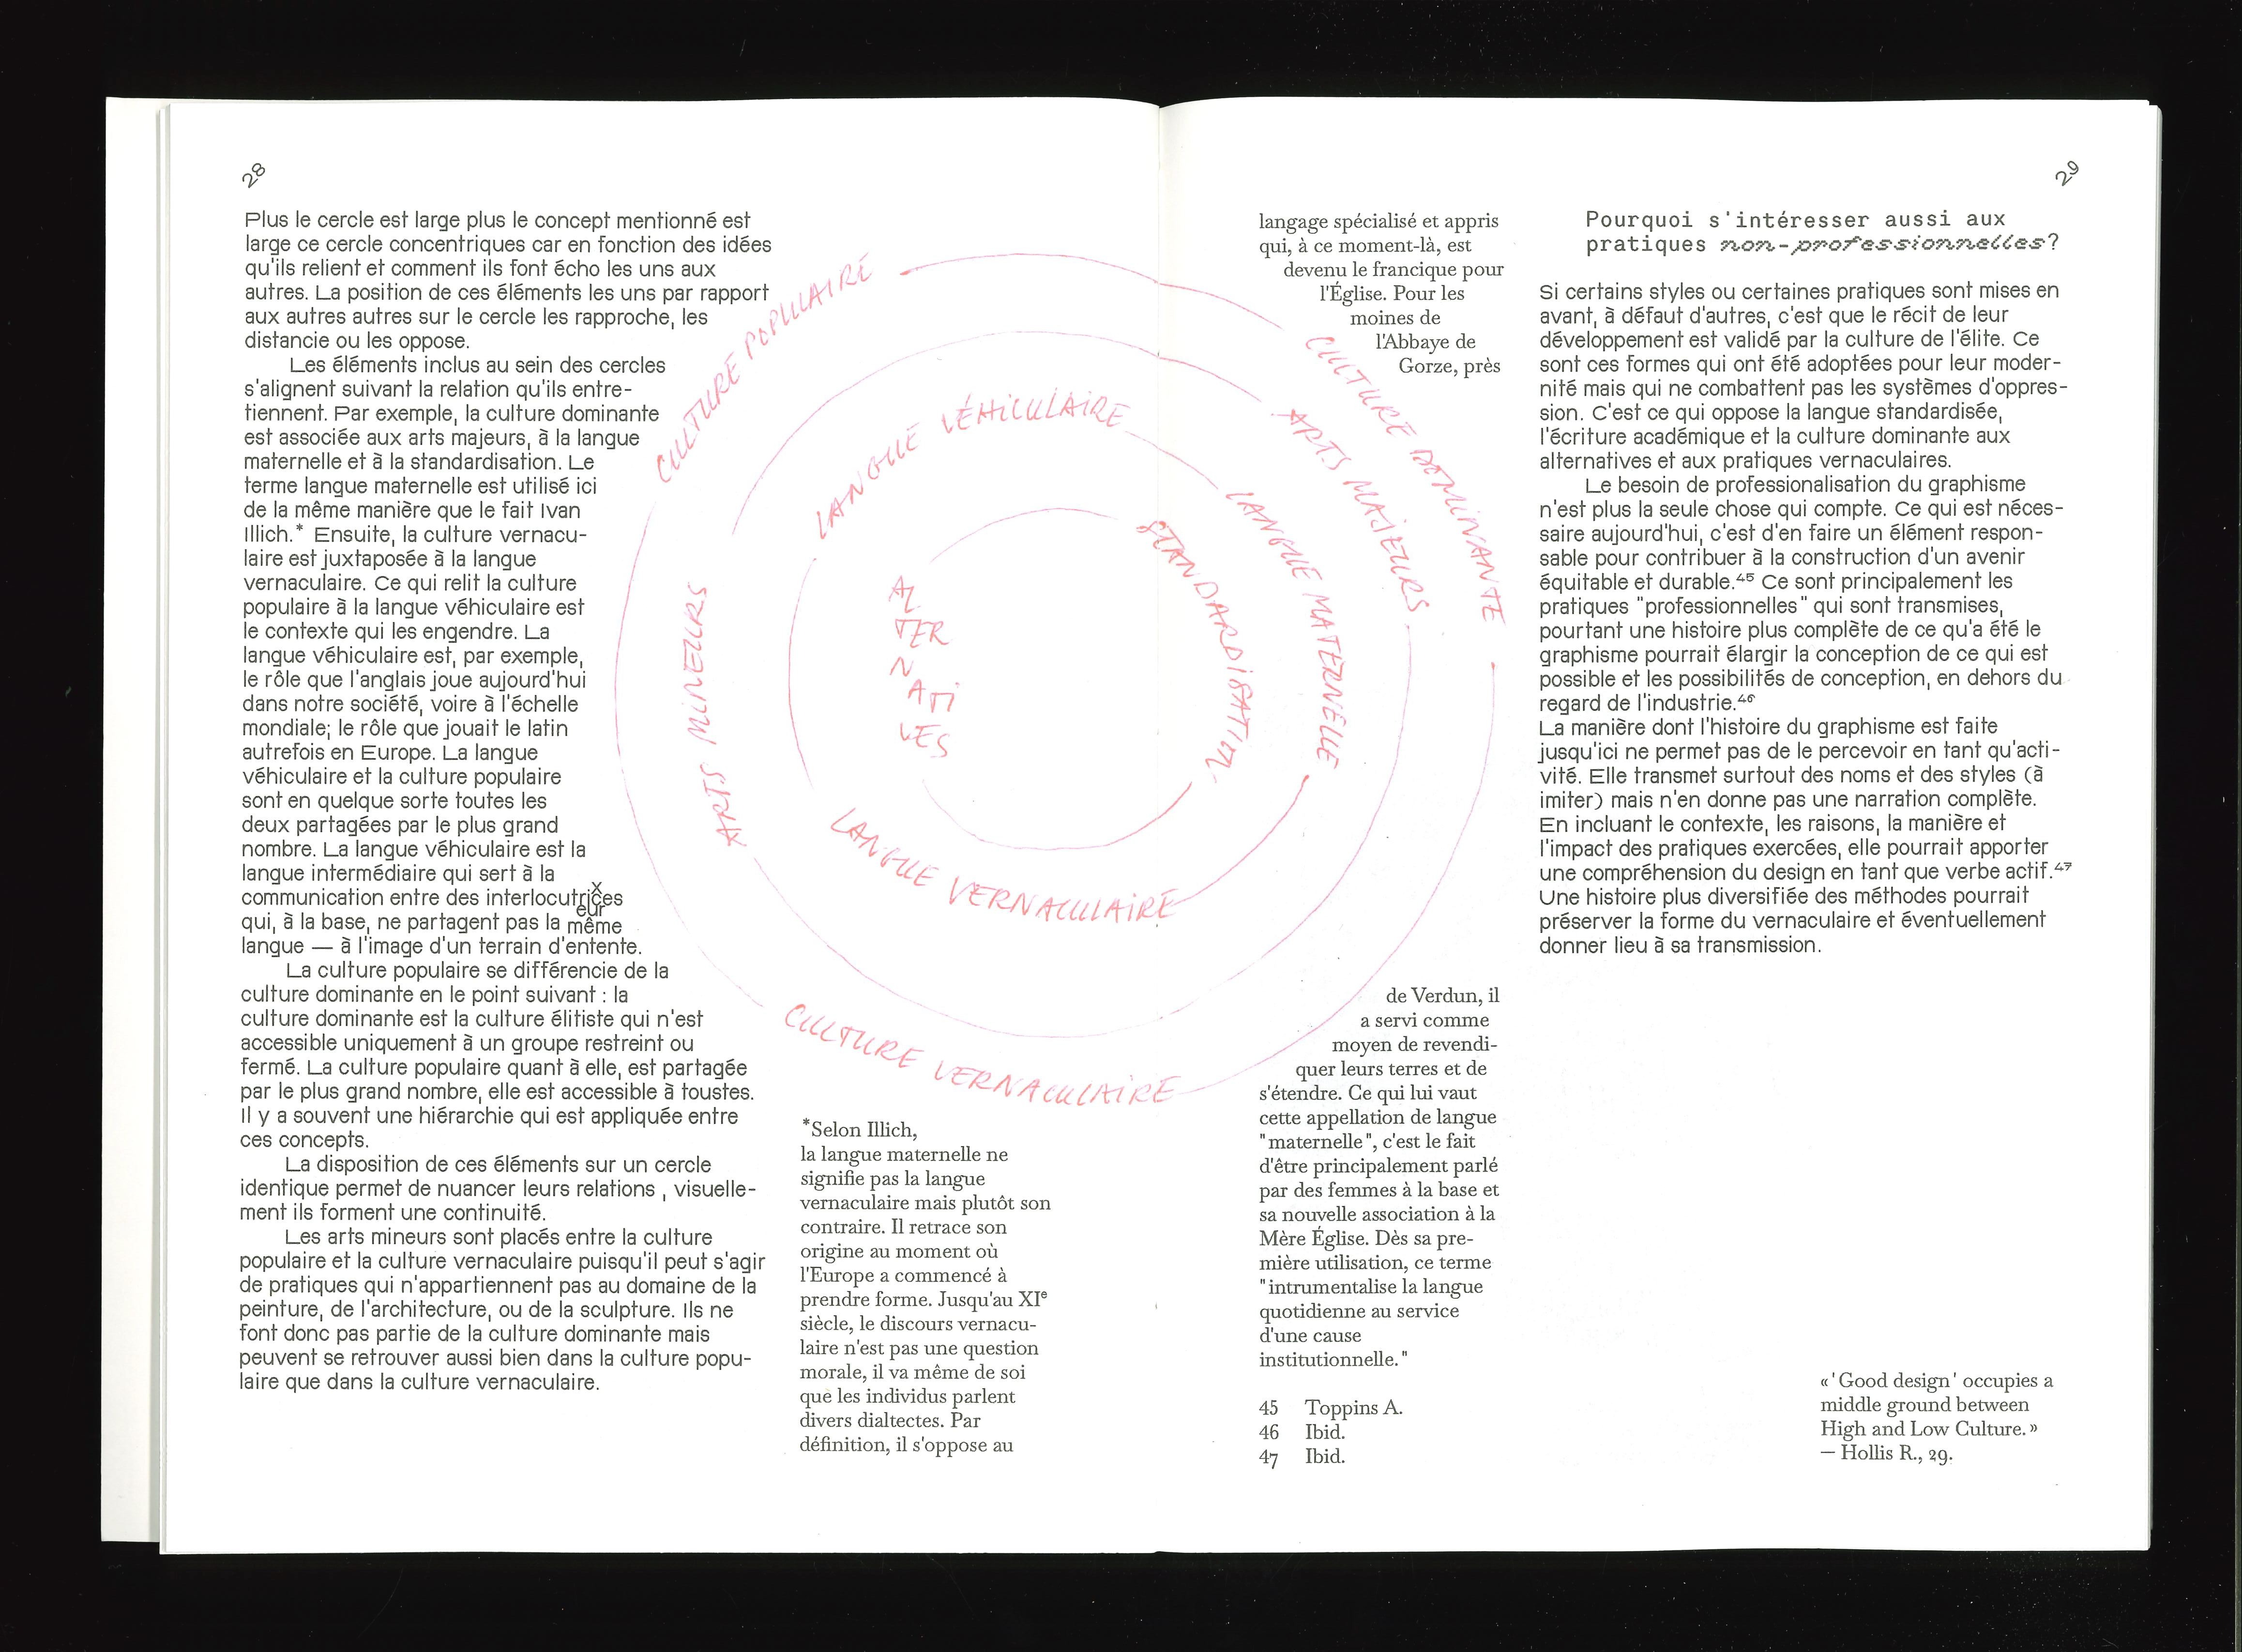 28
Plus le cercle est large plus le concept mentionné est
large ce cercle concentriques car en fonction des idées
qu'ils relient et comment ils font écho les uns aux
autres. La position de ces éléments les uns par rapport
aux autres autres sur le cercle les rapproche, les
distancie ou les oppose.
Les éléments inclus au sein des cercles
s'alignent suivant la relation qu'ils entre-
tiennent. Par exemple, la culture dominante
est associée aux arts majeurs, à la langue
maternelle et à la standardisation. Le
terme langue maternelle est utilisé ici
de la même manière que le fait Ivan
Illich.* Ensuite, la culture vernacu-
laire est juxtaposée à la langue
vernaculaire. Ce qui relit la culture
populaire à la langue véhiculaire est
le contexte qui les engendre. La
langue véhiculaire est, par exemple,
le rôle que l'anglais joue aujourd'hui
dans notre société, voire à l'échelle
mondiale; le rôle que jouait le latin
autrefois en Europe. La langue
véhiculaire et la culture populaire
sont en quelque sorte toutes les
deux partagées par le plus grand
nombre. La langue véhiculaire est la
langue intermédiaire qui sert à la
communication entre des interlocutricxeures
qui, à la base, ne partagent pas la même
langue — à l'image d'un terrain d'entente.
La culture populaire se différencie de la
culture dominante en le point suivant : la
culture dominante est la culture élitiste qui n'est
accessible uniquement à un groupe restreint ou
fermé. La culture populaire quant à elle, est partagée
par le plus grand nombre, elle est accessible à toustes.
Il y a souvent une hiérarchie qui est appliquée entre
ces concepts.
La disposition de ces éléments sur un cercle
identique permet de nuancer leurs relations , visuelle-
ment ils forment une continuité.
Les arts mineurs sont placés entre la culture
populaire et la culture vernaculaire puisqu'il peut s'agir
de pratiques qui n'appartiennent pas au domaine de la
peinture, de l'architecture, ou de la sculpture. Ils ne
font donc pas partie de la culture dominante mais
peuvent se retrouver aussi bien dans la culture popu-
laire que dans la culture vernaculaire.
CULTURE POPULAIRE
CULTURE DOMINANTE
CULTURE VERNACULAIRE
ARTS MINEURS
ARTS MAJEURS
LANGUE VÉHICULAIRE
LANGUE MATERNELLE
LANGUE VERNACULAIRE
STANDARDISATION
AL
TER
N
ATI
VES
*Selon Illich,
la langue maternelle ne
signifie pas la langue
vernaculaire mais plutôt son
contraire. Il retrace son
origine au moment où
l'Europe a commencé à
prendre forme. Jusqu'au XIe
siècle, le discours vernacu-
laire n'est pas une question
morale, il va même de soi
que les individus parlent
divers dialtectes. Par
définition, il s'oppose au
langage spécialisé et appris
qui, à ce moment-là, est
devenu le francique pour
l'Église. Pour les
moines de
l'Abbaye de
Gorze, près
de Verdun, il
a servi comme
moyen de revendi-
quer leurs terres et de
s'étendre. Ce qui lui vaut
cette appellation de langue
"maternelle", c'est le fait
d'être principalement parlé
par des femmes à la base et
sa nouvelle association à la
Mère Église. Dès sa pre-
mière utilisation, ce terme
"intrumentalise la langue
quotidienne au service
d'une cause
institutionnelle."
45 Toppins A.
46 Ibid.
47 Ibid.
29
Pourquoi s'intéresser aussi aux
pratiques non-professionnelles?
Si certains styles ou certaines pratiques sont mises en
avant, à défaut d'autres, c'est que le récit de leur
développement est validé par la culture de l'élite. Ce
sont ces formes qui ont été adoptées pour leur moder-
nité mais qui ne combattent pas les systèmes d'oppres-
sion. C'est ce qui oppose la langue standardisée,
l'écriture académique et la culture dominante aux
alternatives et aux pratiques vernaculaires.
Le besoin de professionalisation du graphisme
n'est plus la seule chose qui compte. Ce qui est néces-
saire aujourd'hui, c'est d'en faire un élément respon-
sable pour contribuer à la construction d'un avenir
équitable et durable.45 Ce sont principalement les
pratiques "professionnelles" qui sont transmises,
pourtant une histoire plus complète de ce qu'a été le
graphisme pourrait élargir la conception de ce qui est
possible et les possibilités de conception, en dehors du
regard de l'industrie.46
La manière dont l'histoire du graphisme est faite
jusqu'ici ne permet pas de le percevoir en tant qu'acti-
vité. Elle transmet surtout des noms et des styles (à
imiter) mais n'en donne pas une narration complète.
En incluant le contexte, les raisons, la manière et
l'impact des pratiques exercées, elle pourrait apporter
une compréhension du design en tant que verbe actif.47
Une histoire plus diversifiée des méthodes pourrait
préserver la forme du vernaculaire et éventuellement
donner lieu à sa transmission.
«'Good design' occupies a
middle ground between
High and Low Culture.»
— Hollis R., 29.